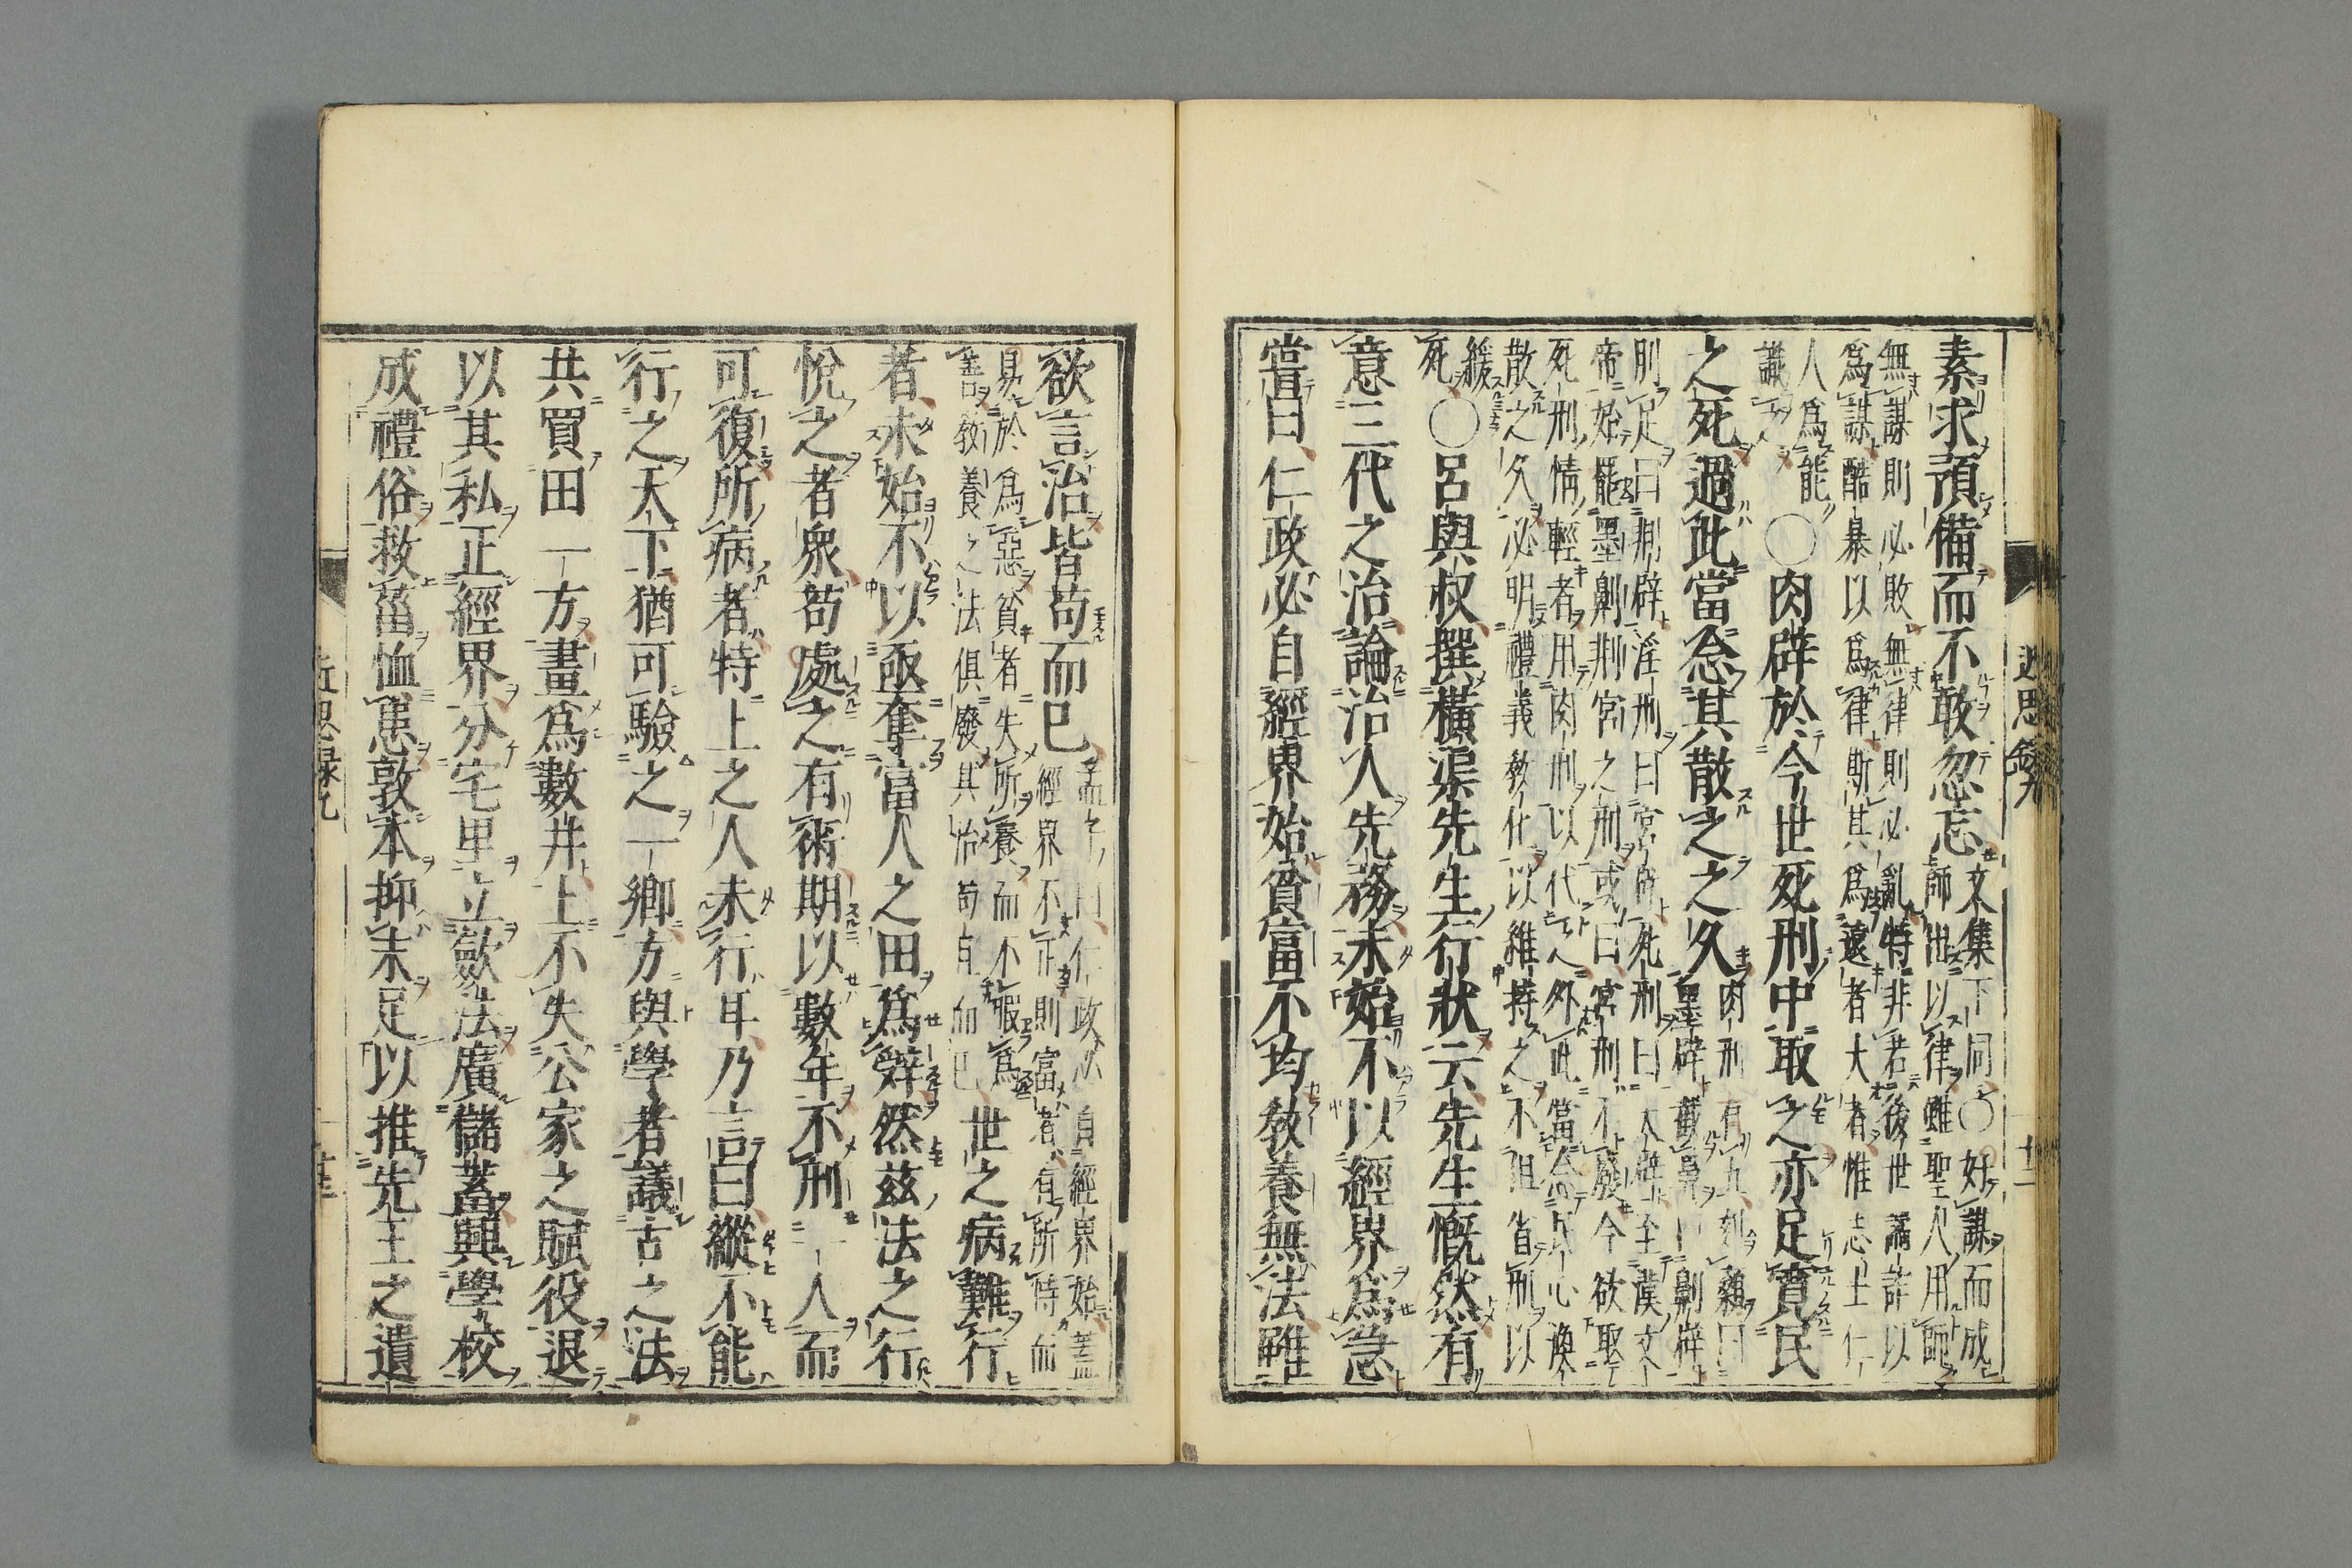 素求預備而不敢忽忘
文集下同〇好謀而成
師出以律雖聖人用師
無謀則必敗無律則必亂特非若後世譎詐以
爲謀酷暴以爲律斯其爲遠者大者惟志士仁
人爲能
識之
〇肉辟於今世死刑中取之亦足寛民
之死過此當念其散之之久
肉刑有五刻顙曰
墨辟截鼻曰劓辟
刖足曰剕辟淫刑曰宮辟死刑曰大辟至漢文
帝始罷墨劓剕宮之刑或曰宮刑不廢今欲取
死刑情輕者用肉刑以代之外此當念民心渙
散之久必明禮義敎化以維持之不但省刑以
緩
死
〇呂與叔撰橫渠先生行狀云先生慨然有
意三代之治論治人先務未始不以經界爲急
嘗曰仁政必自經界始貧富不均敎養無法雖
近思錄九
十二
欲言治皆苟而已
孟子曰仁政必自經界始蓋
經界不正則富者有所恃而
易於爲惡貧者失所養而不暇爲
善敎養之法俱廢其治苟自而已
世之病難行
者未始不以亟奪富人之田爲辭然茲法之行
悅之者衆苟處之有術期以數年不刑一人而
可復所病者特上之人未行耳乃言曰縱不能
行之天下猶可驗之一鄕方與學者議古之法
共買田一方畫爲數井上不失公家之賦役退
以其私正經界分宅里立斂法廣儲蓄興學校
成禮俗救菑恤患敦本抑末足以推先王之遺
近思録九